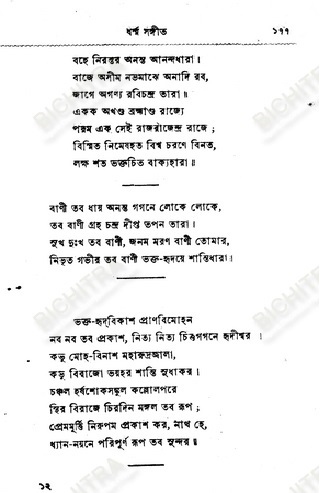 ধর্ম্ম সঙ্গীত ১৭৭
বহে নিরন্তর অনন্ত আনন্দধারা।
বাজে অসীম নভমাঝে অনাদি রব,
জাগে অগণ্য রবিচন্দ্র তারা॥
একক অখণ্ড ব্রহ্মাণ্ড রাজ্যে
পরম এক সেই রাজরাজেন্দ্র রাজে;
বিস্মিত নিমেষহত বিশ্ব চরণে বিনত,
লক্ষ শত ভক্তচিত বাক্যহারা॥
বাণী তব ধায় অনন্ত গগনে লোকে লোকে,
তব বাণী গ্রহ চন্দ্র দীপ্ত তপন তারা॥
সুখ দুঃখ তব বাণী, জনম মরণ বাণী তোমার,
নিভৃত গভীর তব বাণী ভক্ত-হৃদয়ে শান্তিধারা॥
ভক্ত-হৃদ্‌বিকাশ প্রাণবিমোহন
নব নব তব প্রকাশ, নিত্য নিত্য চিত্তগগনে হৃদীশ্বর।
কভু মোহ-বিনাশ মহারুদ্রজ্বালা,
কভু বিরাজো ভয়হর শান্তি সুধাকর।
চঞ্চল হর্ষশোকসঙ্কুল কল্লোলপরে
স্থির বিরাজে চিরদিন মঙ্গল তব রূপ;
প্রেমমূর্ত্তি নিরুপম প্রকাশ কর, নাথ হে,
ধ্যান-নয়নে পরিপূর্ণ রূপ তব সুন্দর॥
১২
BICHITRA